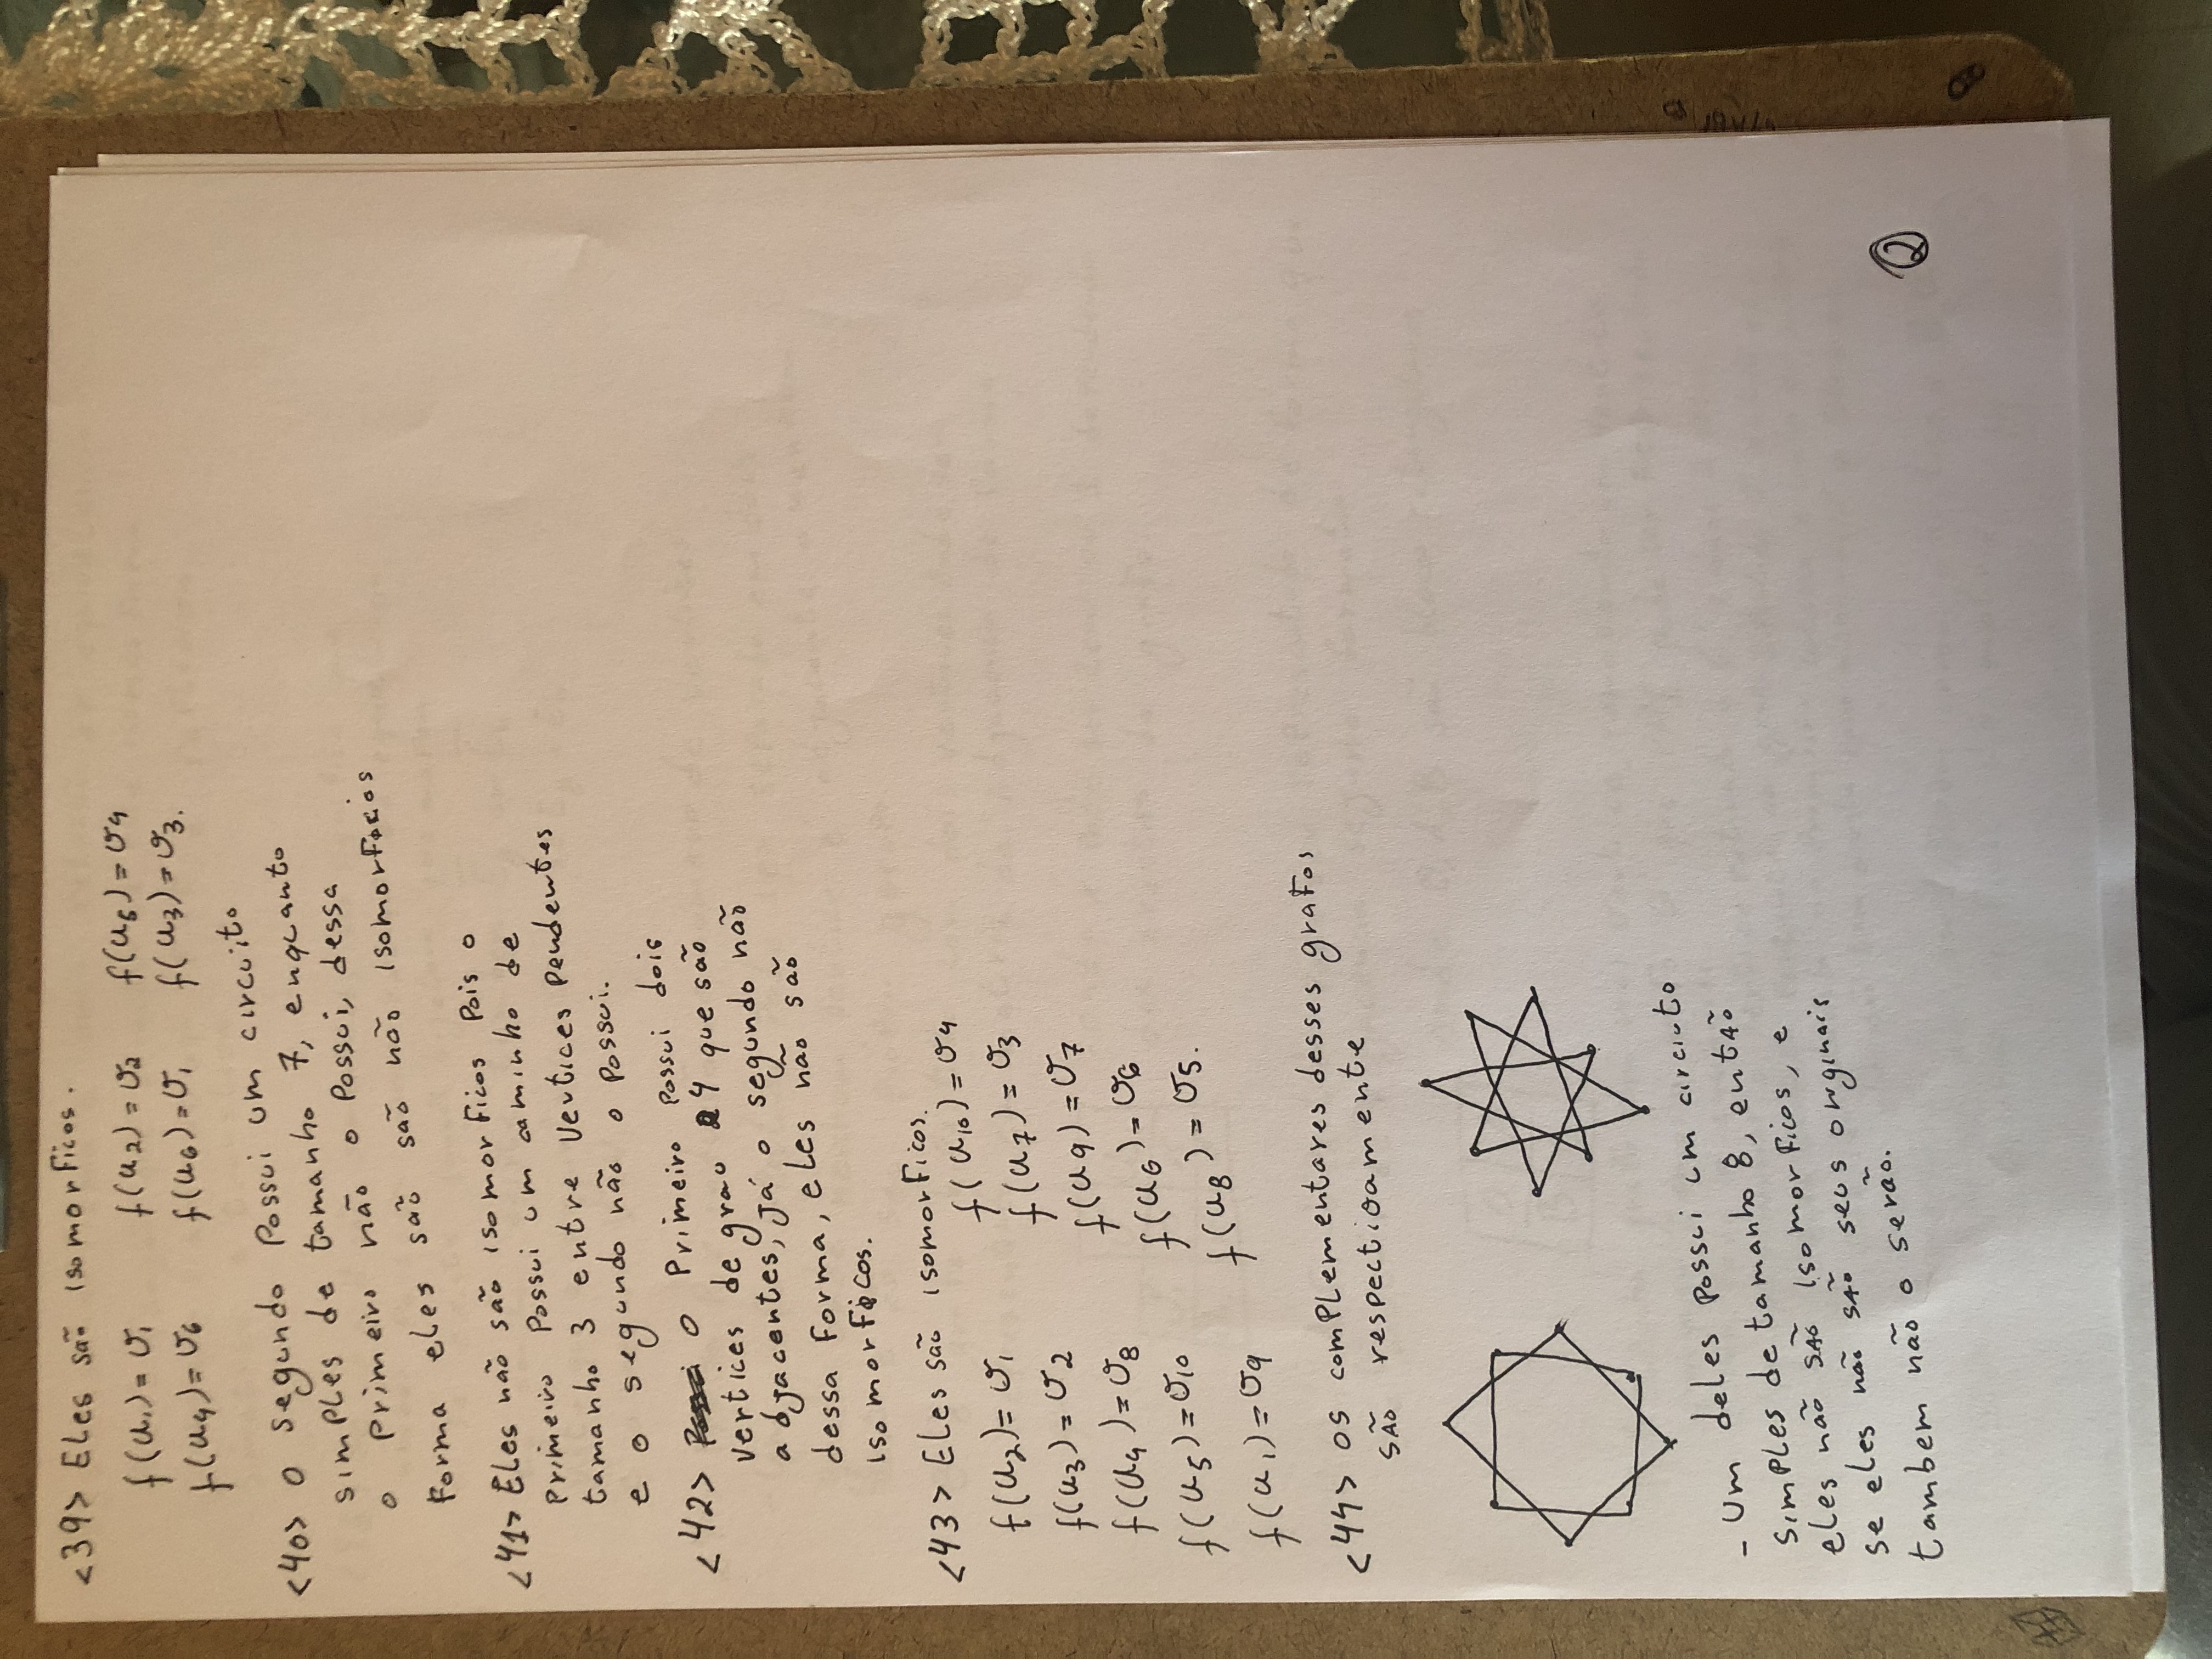 <39> Eles são isomorficos.
f(u₁) = v₁ f(u₂) = v₂ f(u₅) = v₄
f(u₄) = v₆ f(u₆) = v₁ f(u₃) = v₃.
<40> O segundo possui um circuito
simples de tamanho 7, enquanto
o primeiro não o possui, dessa
forma eles são são não isomorficos
<41> Eles não são isomorficos pois o
primeiro possui um caminho de
tamanho 3 entre vertices pendentes
e o segundo não o possui.
<42> O primeiro possui dois
vertices de grau 4 que são
adjacentes, já o segundo não
dessa forma, eles não são
isomorficos.
<43> Eles são isomorficos.
f(u₂) = v₁ f(u₁₀) = v₄
f(u₃) = v₂ f(u₇) = v₃
f(u₄) = v₈ f(u₉) = v₇
f(u₅) = v₁₀ f(u₆) = v₆
f(u₁) = v₉ f(u₈) = v₅.
<44> os complementares desses grafos
são respectivamente
- Um deles possui um circiuto
simples de tamanho 8, então
eles não são isomorficos, e
se eles não são seus originais
tambem não o serão.
2
8